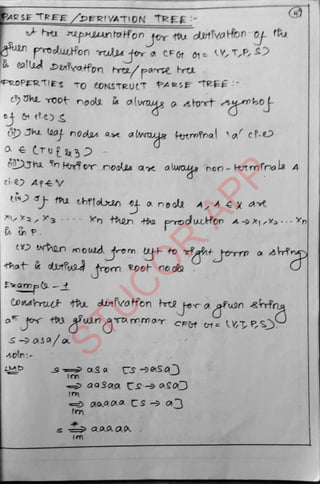 PARSE TREE / DERIVATION TREE :-
A tree representation for the derivation of the
given production rules for a CFG G = (V, T, P, S)
is called Derivation tree/parse tree
PROPERTIES TO CONSTRUCT PARSE TREE :-
(i) The root node is always a start symbol
of G (i.e) S
(ii) The leaf nodes are always terminal 'a' (i.e)
a ∈ (T ∪ {ε})
(iii) The interior nodes are always non-terminals A
(i.e) A ∈ V
(iv) If the children of a node A, A ∈ X are
x1, x2, x3 .... xn then the production A → x1, x2 ... xn
is in P.
(v) When moved from left to right form a string
that is derived from root node.
Example - 1
Construct the derivation tree for a given string
a⁵ for the given grammar CFG G = (V, T, P, S).
S → aSa / a
Soln:-
LMD S ⇒ aSa [S → aSa]
lm
⇒ aaSaa [S → aSa]
lm
⇒ aaaaa [S → a]
lm
S ⇒* aaaaa
lm
STUCOR APP